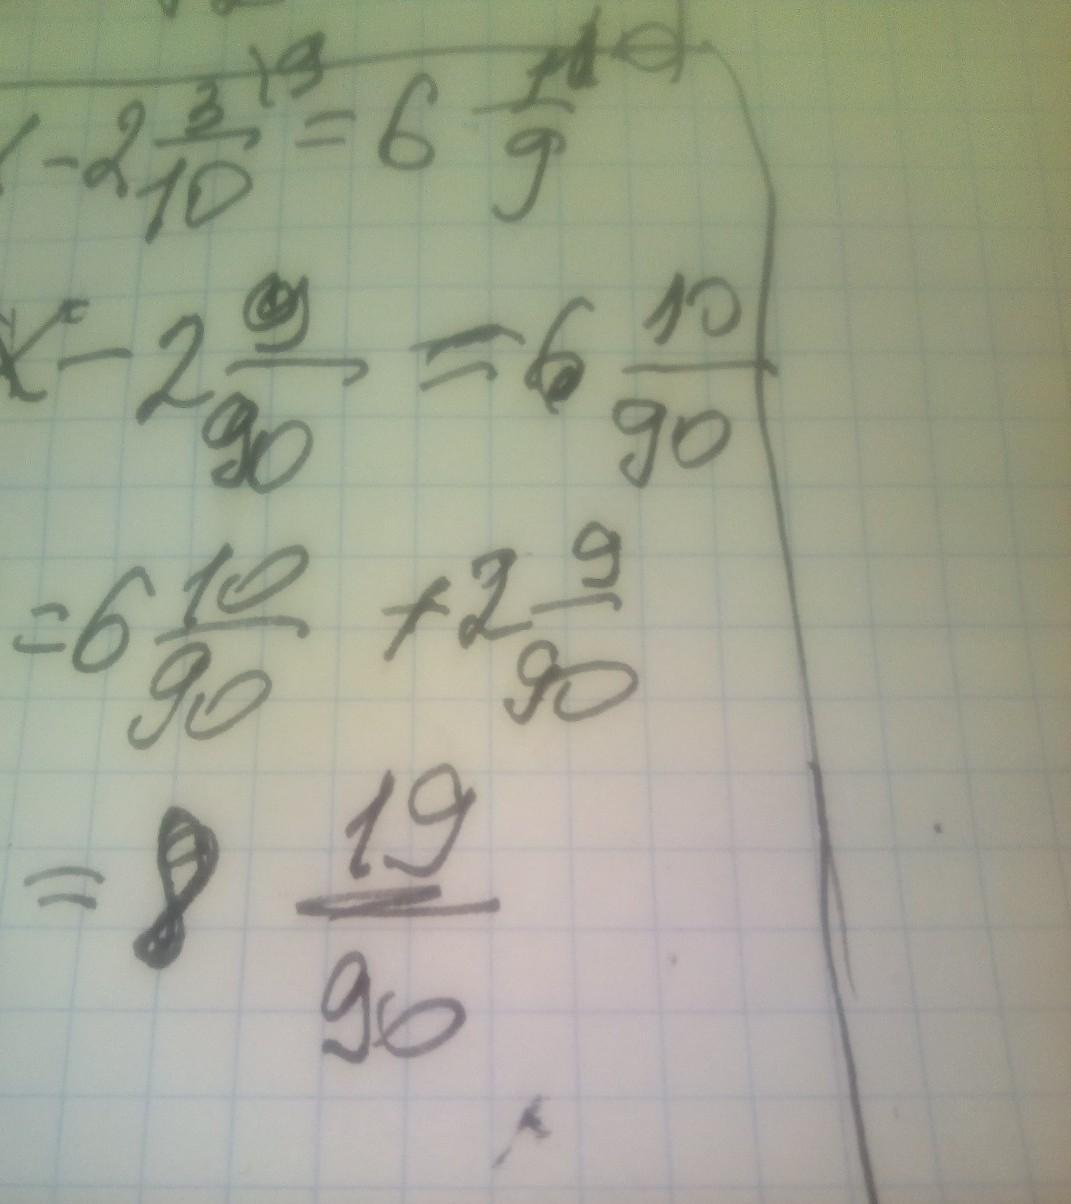 x - 2 3/10 \9 = 6 1/9 \10
x - 2 9/90 = 6 10/90
= 6 10/90 + 2 9/90
= 8 19/90